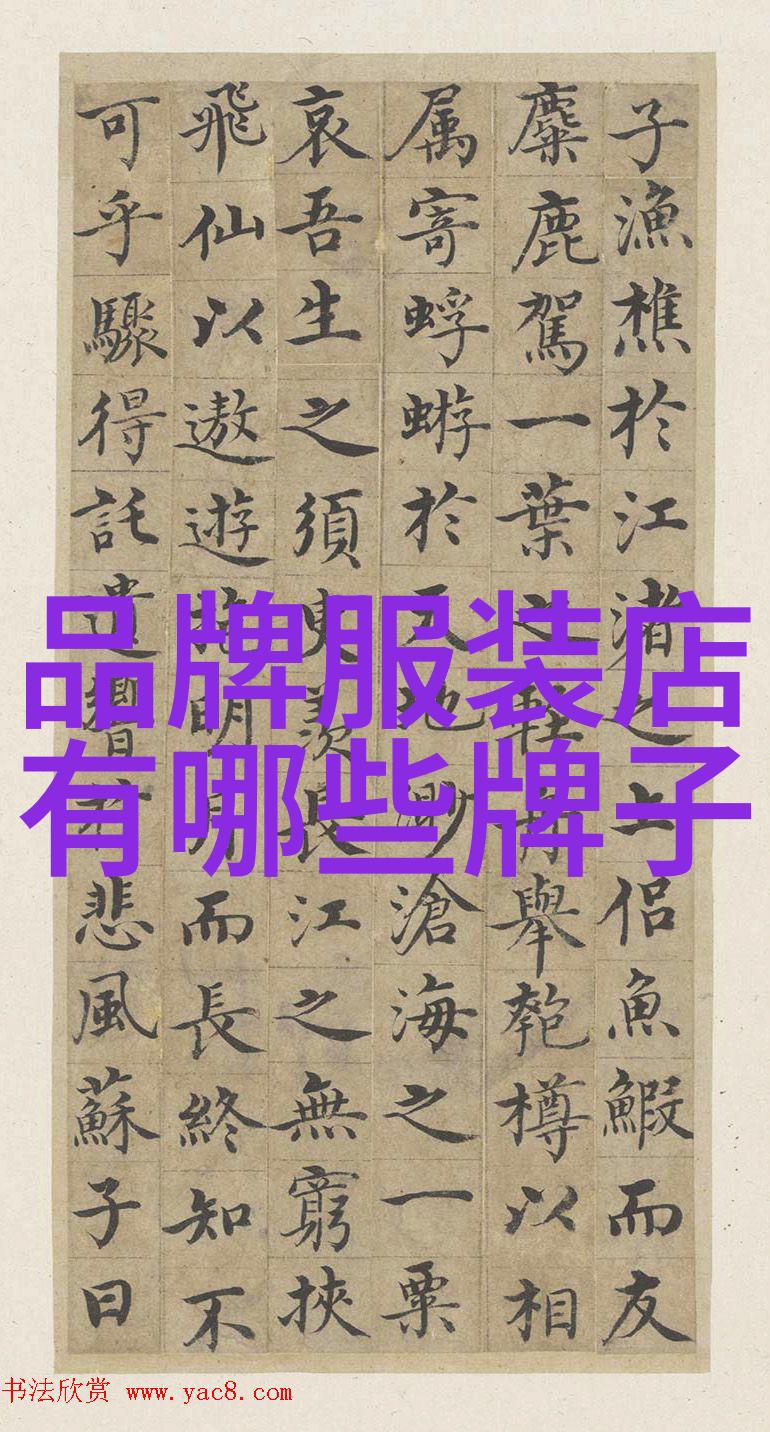 子漁樵於江渚之上侶魚鰕而友
麋鹿駕一葉之輕舟舉匏樽以相
属寄蜉蝣於天地渺滄海之一粟
哀吾生之須臾羨長江之無窮挾
飛仙以遨遊抱明月而長終知不
可乎驟得託遺響於悲風蘇子曰
品牌服装店
有哪些牌子
书法欣赏 www.yac8.com